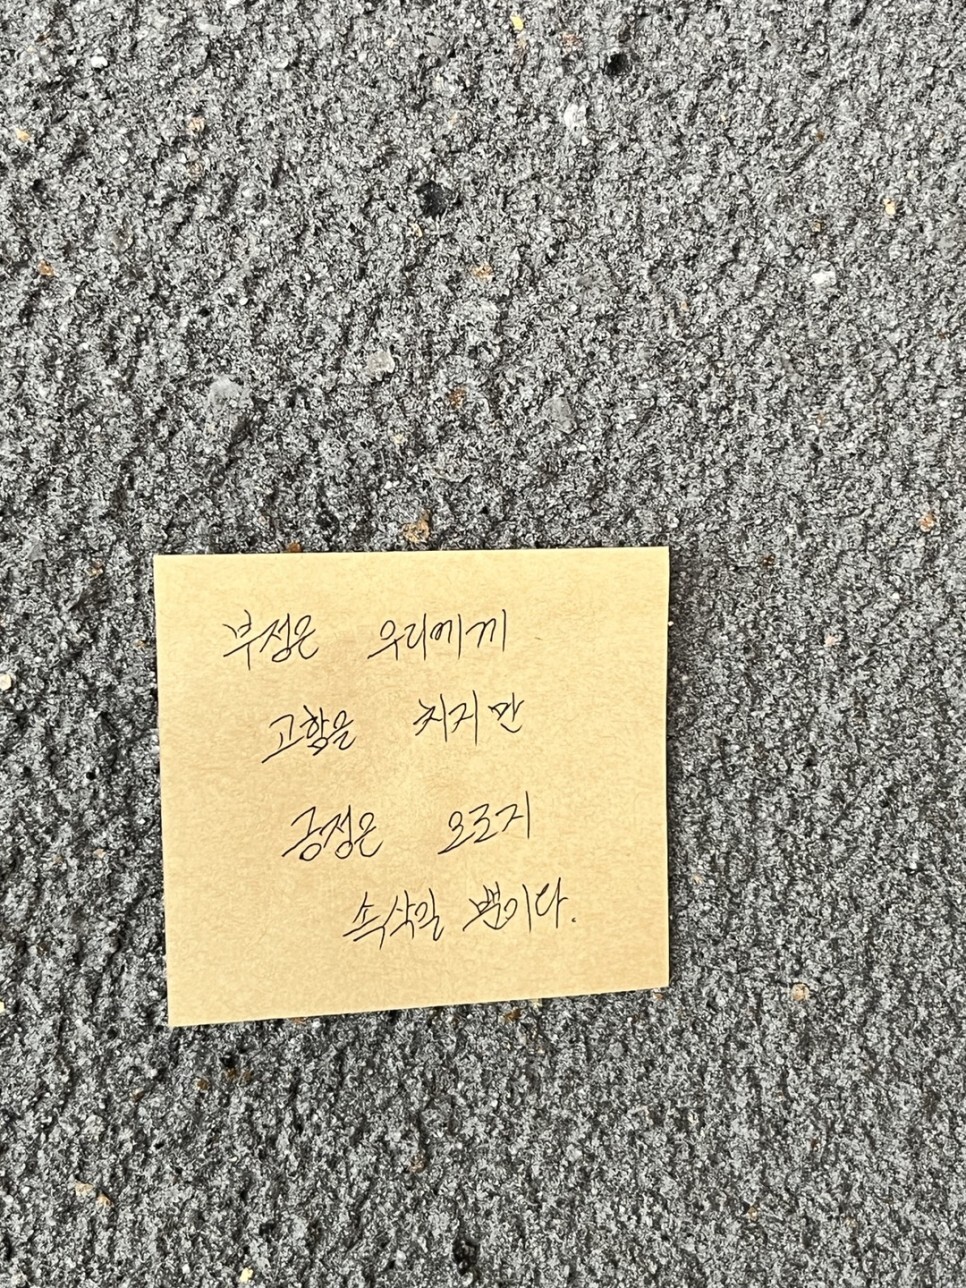 부정은 우리에게
고함을 치지만
긍정은 오로지
속삭일 뿐이다.